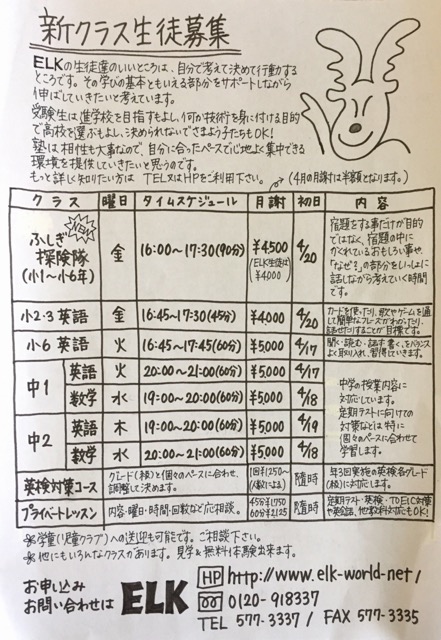 新クラス生徒募集
ELKの生徒達のいいところは、自分で考えて決めて行動する
ところです。その学びの基本ともいえる部分をサポートしながら
伸ばしていきたいと考えています。
受験生は進学校を目指すもよし、何か技術を身に付ける目的
で高校を選ぶもよし、決められないできまよう子たちもOK!
塾は相性も大事なので、自分に合ったペースで心地よく集中できる
環境を提供していきたいと思うのです。
もっと詳しく知りたい方は TEL又はHPをご利用下さい。
(4月の月謝は半額となります。)
クラス 曜日 タイムスケジュール 月謝 初日 内容
NEW ふしぎ探険隊(小1〜小6年) 金 16:00〜17:30(90分) ¥4500(ELK生徒は¥4,000) 4/20 宿題をする事だけが目的ではなく、宿題の中にかくれているおもしろい事や「なぜ?」の部分をいっしょに話しながら考えていく時間です。
小2・3 英語 金 16:45〜17:30(45分) ¥4,000 4/20 カードを使ったり、歌やゲームを通して簡単なフレーズがわかったり、話せたりすることが目標です。
小6 英語 火 16:45〜17:45(60分) ¥5,000 4/17 聞く・読む・話す・書く、をバランスよく取り入れ、習得していきます。
中1 英語 火 20:00〜21:00(60分) ¥5,000 4/17
数学 水 19:00〜20:00(60分) ¥5,000 4/18
中2 英語 木 19:00〜20:00(60分) ¥5,000 4/19
数学 水 20:00〜21:00(60分) ¥5,000 4/18
中学の授業内容に
対応しています。
定期テストに向けての
対策などは特に
個々のペースに合わせて
学習します。
英検対策コース グレード(級)と個々のペースに合わせ、調整して決めます。 1回¥1,250〜(人数による) 随時 年3回実施の英検各グレード(級)に対応します。
プライベートレッスン 内容・曜日・時間・回数など応相談。 45分¥1,750 60分¥2,125 随時 定期テスト・英検・TOEIC対策や英会話、他教科対応もOK!
※学童(児童クラブ)への送迎も可能です。ご相談下さい。
※他にもいろんなクラスがあります。見学&無料体験出来ます。
お申し込み
お問い合わせは ELK
HP http://www.elk-world-net/
0120-918337
TEL 577-3337 / FAX 577-3335